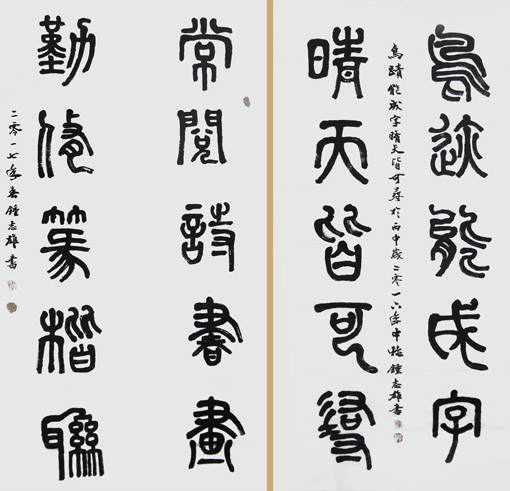 鳥迹能成字
晴天皆可尋
鳥蹟能成字晴天皆可尋於丙申歲二零一六年中秋鍾志雄書
常閱詩書畫
勤修篆楷聯
二零一七年春鍾志雄書